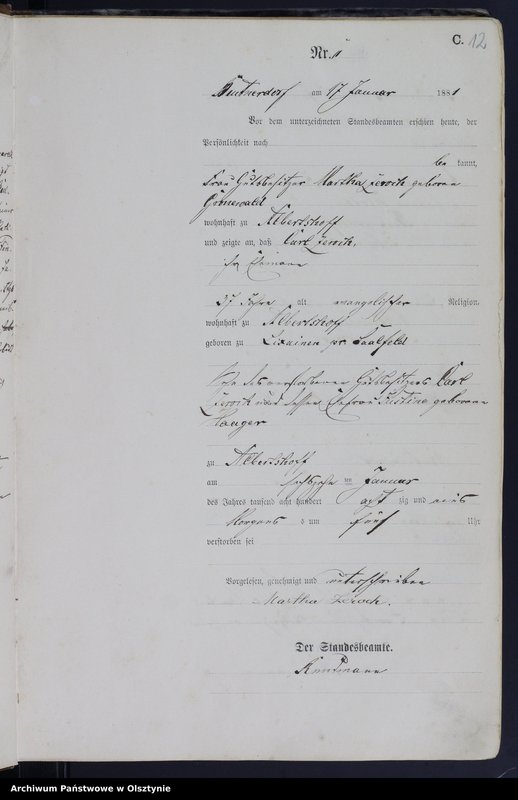 C. 12
Nr. 1
am 17 Januar 1881
Vor dem unterzeichneten Standesbeamten erschien heute, der
Persönlichkeit nach
be kannt,
Frau Gutsbesitzer Martha geborene
Grunewald
wohnhaft zu Albertshoff
und zeigte an, daß Carl
ihr Ehemann
37 Jahre alt evangelischer Religion,
wohnhaft zu Albertshoff
geboren zu pr. Saalfeld
Sohn des verstorbenen Gutsbesitzers Carl
und dessen Ehefrau Justine geborenen
zu Albertshoff
am sechszehn ten Januar
des Jahres tausend acht hundert acht zig und eins
Morgens um fünf Uhr
verstorben sei
Vorgelesen, genehmigt und unterschrieben
Martha
Der Standesbeamte.
Archiwum Państwowe w Olsztynie